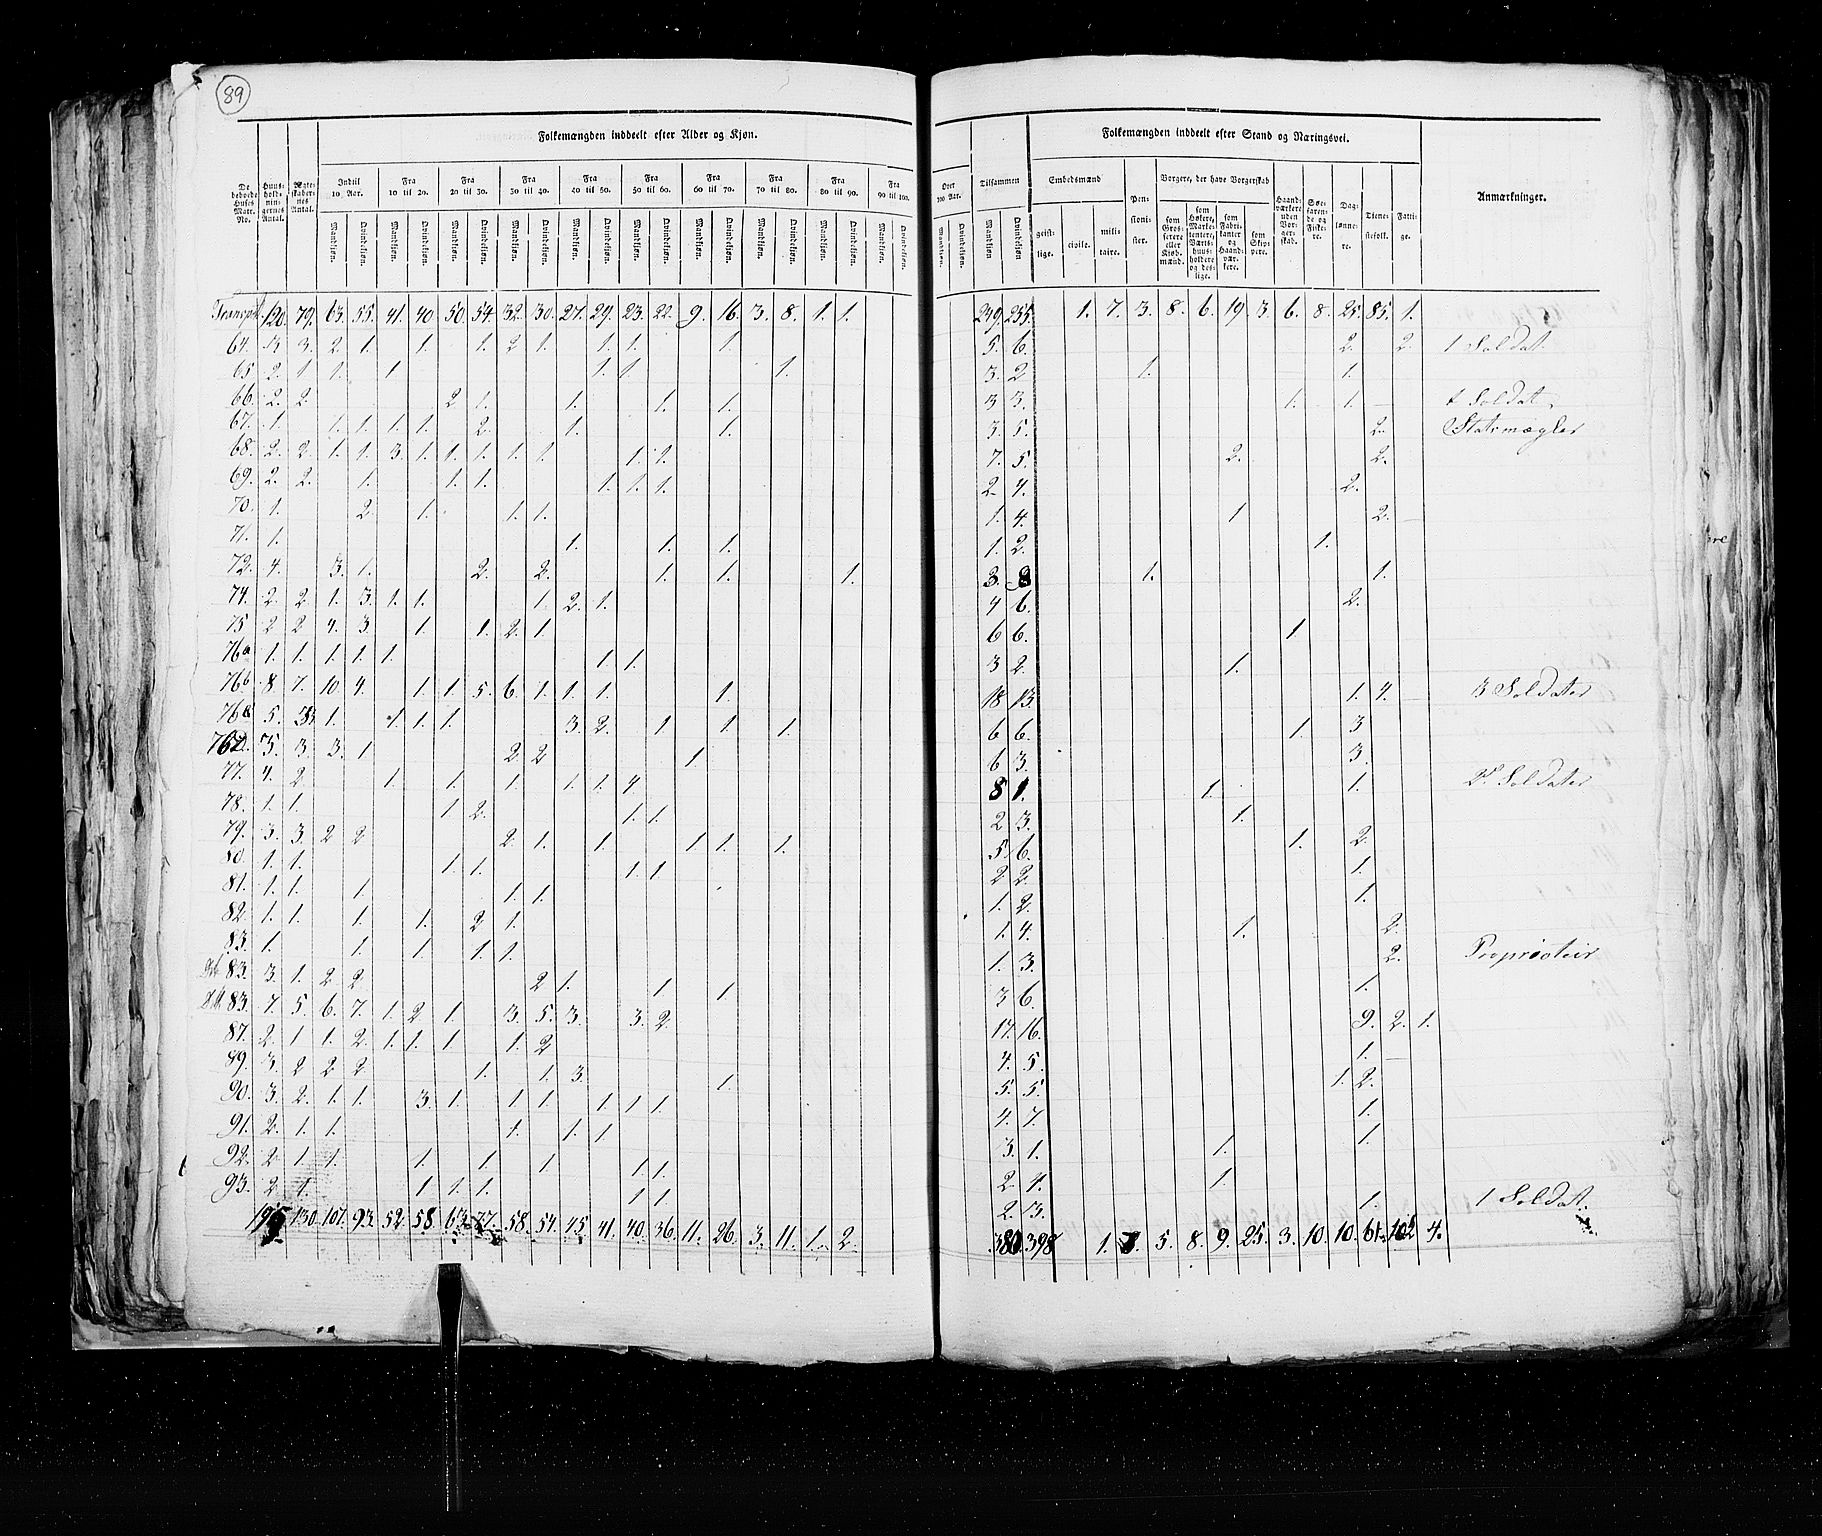 89
Folkemængden inddeelt efter Alder og Kjøn.
Folkemængden inddeelt efter Stand og Næringsvei.
De beboede Huses Matr. No. | Huusholdningernes Antal. | Ægteskabernes Antal. | Indtil 10 Aar. | Fra 10 til 20. | Fra 20 til 30. | Fra 30 til 40. | Fra 40 til 50. | Fra 50 til 60. | Fra 60 til 70. | Fra 70 til 80. | Fra 80 til 90. | Fra 90 til 100. | Over 100 Aar. | Tilsammen | Embedsmænd | Pensionister. | Borgere, der have Borgerskab | Haandværkere uden Borgerskab. | Søefarende og Fiskere. | Daglønnere. | Tienestefolk. | Fattige. | Anmærkninger.
Mandkjøn. Qvindekjøn.
geistlige. | civile. | militaire. | som Grosserere eller Kjøbmænd. | som Høkere, Marketentere, Værtshuusholdere og deslige. | som Fabrikanter og Haandværkere. | som Skippere.
Transpt. 120. 79. 63. 55. 41. 40 50. 54. 32. 30. 27. 29. 23. 22. 9. 16. 3. 8. 1. 1. 249. 255. 1. 7. 3. 8. 6. 19. 3. 6. 8. 25. 85. 1.
64. 3 3. 2. 1. 1. 1. 2 1. 1. 1. 1. 5. 6. 2. 2. 1 Soldat.
65 2. 1 1. 1 1. 1 1. 3. 2 1. 1.
66. 2. 2 2 1. 1. 1. 1. 3 3. 1. 1. Soldat.
67. 1. 1. 1. 1. 1. 2. 1. 1. 3. 5. 2. Statsmægler
68. 2. 2. 1. 1. 3. 1. 1. 1. 1. 1. 1. 2. 7. 5. 2. 2.
69. 2. 2. 1. 1. 1. 1. 1. 1. 2 4. 2.
70. 1. 2 1. 1. 1. 1. 4. 1 2.
71. 1. 1. 1. 1. 1. 2. 1.
72. 4. 3. 1. 2. 2. 1. 1. 1. 3. 8 1. 1.
74. 2. 2 1. 3. 1. 1. 1. 2. 1. 4 6. 2.
75 2 2 4. 3. 1. 1. 2. 1. 6 6. 1
76a 1. 1. 1. 1. 1. 1. 1. 3 2. 1.
76b 8. 7. 10. 4. 1. 1. 5. 6. 1. 1. 1. 1. 18 13. 1. 4. 3 Soldater
5. 1. 1. 1. 1. 3. 2. 1 1. 1. 6 6. 1. 3
5. 3. 3. 1. 2. 2 1. 6 3. 3.
77. 4. 2 1. 1. 1. 1. 1. 4. 8 1. 1. 1. 2 Soldater
78. 1. 1. 1. 2. 1. 1. 2 3. 1.
79. 3. 3. 2 2 2. 1. 1. 1. 1. 1. 5 6. 1. 2.
80. 1. 1. 1. 1. 1. 1. 2 2. 1.
81. 1. 1. 1. 1. 1. 1. 2. 1.
82. 1. 1. 1. 1. 2 1. 1. 4. 1. 2.
83. 1. 1. 1. 1. 1. 1. 3. 2. Proprietair
83. 3. 1. 2 2. 2 1. 1. 1. 3 6. 1.
83. 7. 5. 6. 7. 1. 2 1. 3. 5. 3. 3. 2. 17. 16. 9. 2. 1.
87. 2. 1 1. 2. 1. 1. 1. 1. 2 4. 5. 1.
89. 3. 2 2 2 1. 1. 3. 1. 5. 5. 1. 2.
90. 3. 2. 1. 1. 3. 1. 1. 1. 1. 1. 1. 4. 7. 1.
91. 2. 1. 1. 1. 1. 1. 3. 1. 1. 1.
92. 2 1. 1. 1. 1. 1. 1. 1. 2 4. 1.
93. 2 1. 1. 1. 1. 1. 1. 2. 3. 1. 1 Soldat.
195 130. 107. 93. 52. 58. 63. 77. 58. 54. 45. 41. 40. 36. 11. 26. 3. 11. 1. 2. 380. 398 1. 7. 5. 8. 9. 25. 3. 10. 10. 61. 102 4.